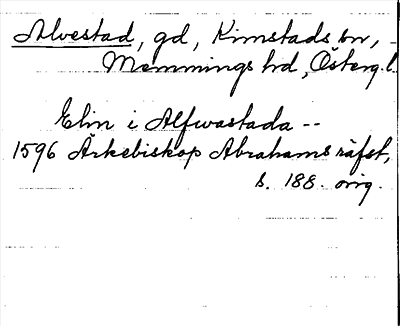 Alvestad, gd, Kimstads sn,
Memmings hd, Österg. l.
Elin i Alfwastada --
1596 Ärkebiskop Abrahams räfst,
s. 188. orig.